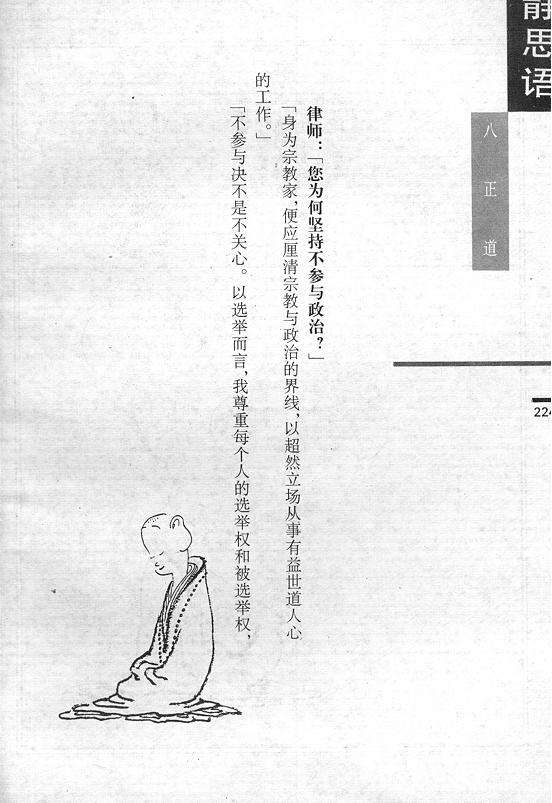 静思语
八正道
224
律师：「您为何坚持不参与政治？」
「身为宗教家，便应厘清宗教与政治的界线，以超然立场从事有益世道人心
的工作。」
「不参与决不是不关心。以选举而言，我尊重每个人的选举权和被选举权，